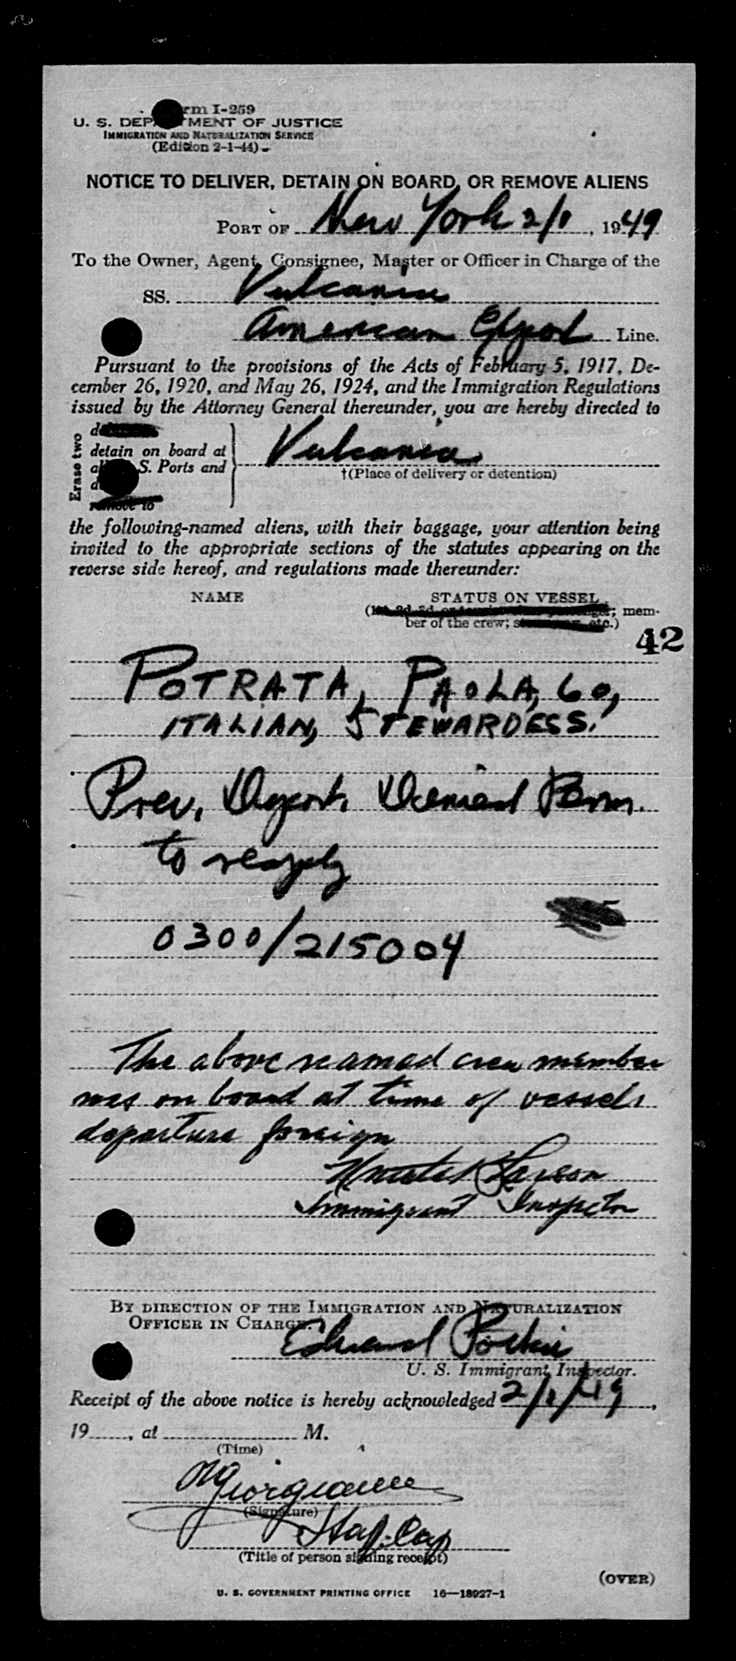 Form I-259
U. S. DEPARTMENT OF JUSTICE
IMMIGRATION AND NATURALIZATION SERVICE
(Edition 2-1-44)
NOTICE TO DELIVER, DETAIN ON BOARD, OR REMOVE ALIENS
PORT OF New York 2/1, 1949
To the Owner, Agent, Consignee, Master or Officer in Charge of the
SS. Vulcania
American Export Line.
Pursuant to the provisions of the Acts of February 5, 1917, De-
cember 26, 1920, and May 26, 1924, and the Immigration Regulations
issued by the Attorney General thereunder, you are hereby directed to
Erase two
detain on board at
S. Ports and
remove to
Vulcania
†(Place of delivery or detention)
the following-named aliens, with their baggage, your attention being
invited to the appropriate sections of the statutes appearing on the
reverse side hereof, and regulations made thereunder:
NAME STATUS ON VESSEL
mem-
ber of the crew; etc.)
42
POTRATA, PAOLA, 60,
ITALIAN, STEWARDESS.
Prev. Deport. Denied Perm.
to reapply
0300/215004
The above named crew member
was on board at time of vessels
departure foreign
Larson
Immigrant Inspector
BY DIRECTION OF THE IMMIGRATION AND NATURALIZATION
OFFICER IN CHARGE.
Edward
U. S. Immigrant Inspector.
Receipt of the above notice is hereby acknowledged 2/1/49,
19, at M.
(Time)
(Signature)
Staf. Cap
(Title of person signing receipt)
(OVER)
U. S. GOVERNMENT PRINTING OFFICE 16—18927-1